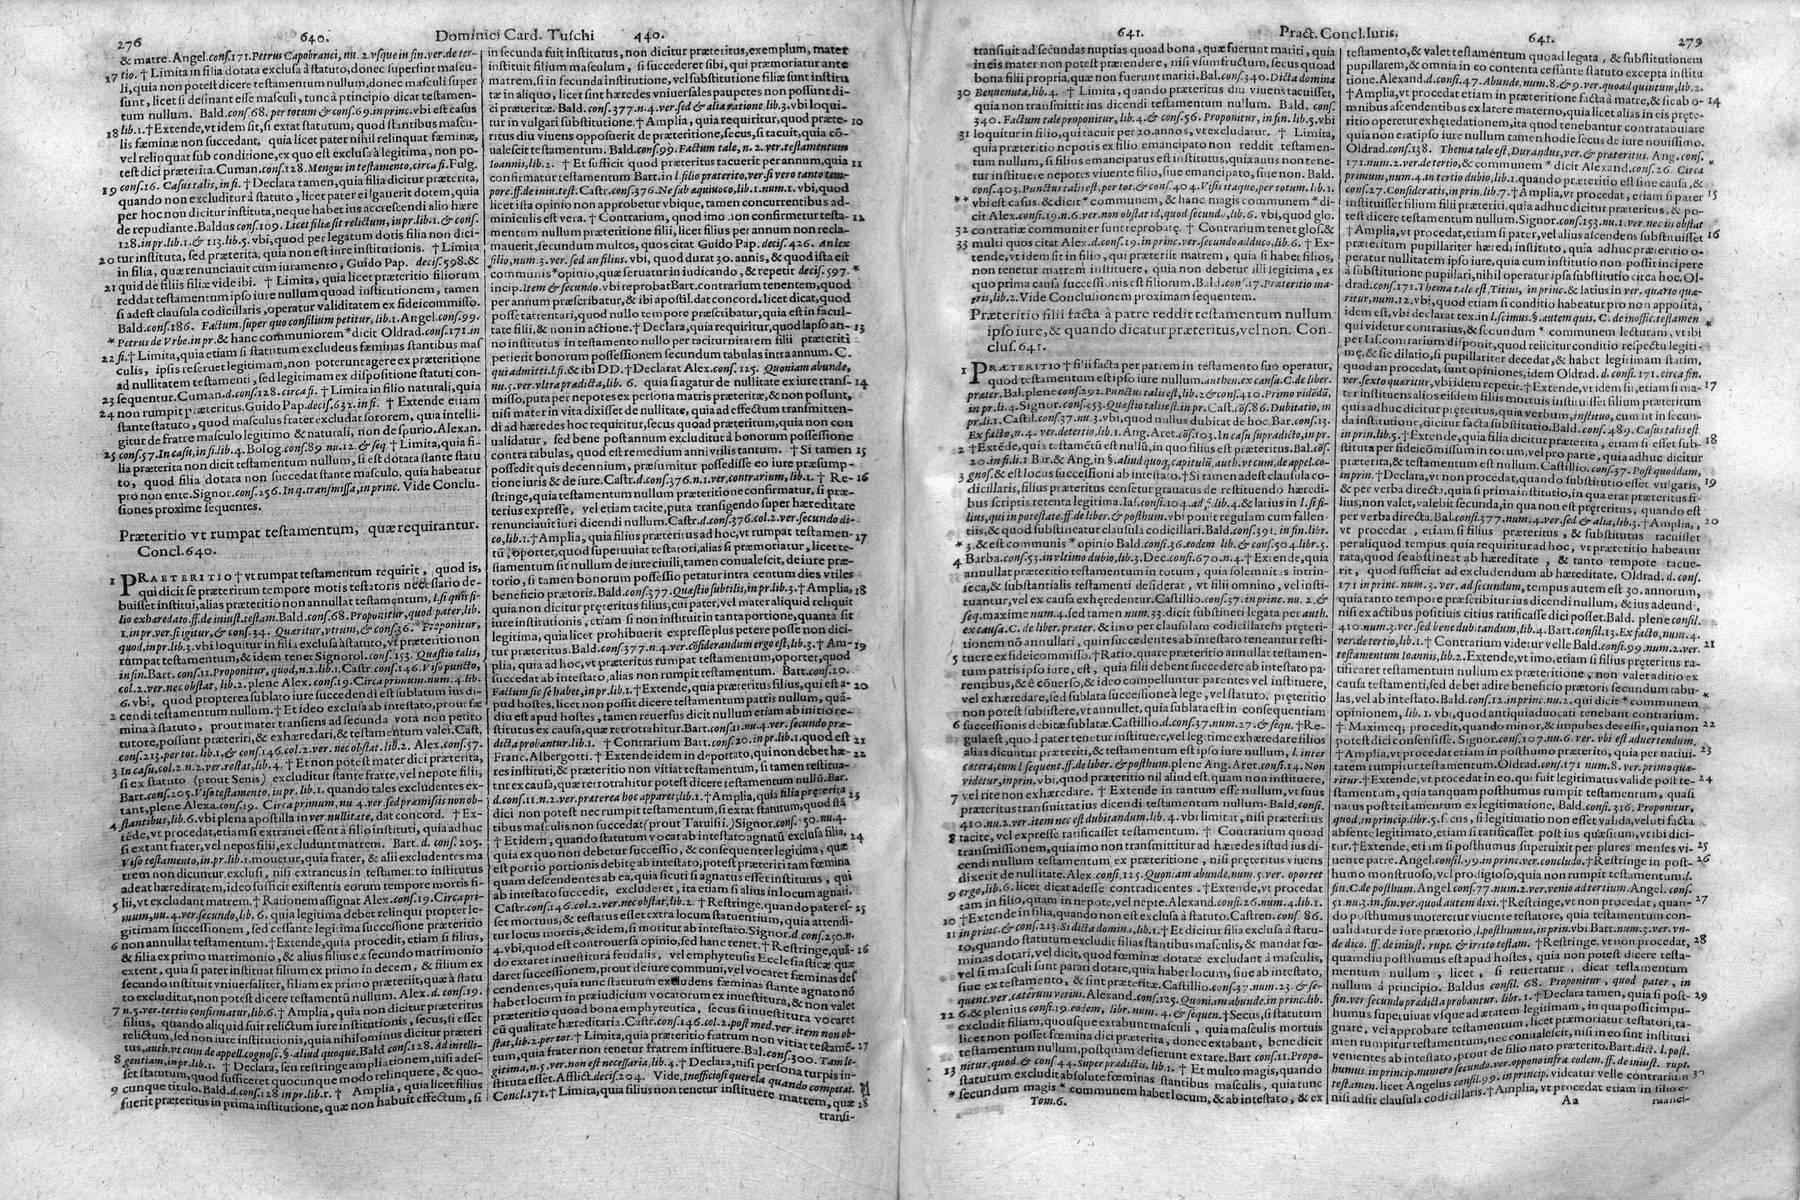 276
640.
Dominici Card. Tuschi
440.
& matre. Angel. conf. 171. Petrus Capobranci, nu. 2. vsque in fin. ver. de ter-
17 tio. † Limita in filia dotata exclusa à statuto, donec supersint mascu-
li, quia non potest dicere testamentum nullum, donec masculi super
sunt, licet si desinant esse masculi, tunc à principio dicat testamen-
tum nullum. Bald. conf. 68. per totum & conf. 69. in princ. vbi est casus
18 lib. 1. † Extende, vt idem sit, si extat statutum, quod stantibus mascu-
lis fœminæ non succedant, quia licet pater nihil relinquat fœminæ,
vel relinquat sub conditione, ex quo est exclusa à legitima, non po-
test dici præterita. Cuman. conf. 128. Mengus in testamento, circa fi. Fulg.
19 conf. 16. Casus talis, in fi. † Declara tamen, quia filia dicitur præterita,
quando non excluditur à statuto, licet pater ei legauerit dotem, quia
per hoc non dicitur instituta, neque habet ius accrescendi alio hære
de repudiante. Baldus conf. 109. Licet filiæ sit relictum, in pr. lib. 1. & conf.
128. in pr. lib. 1. & 113. lib. 5. vbi, quod per legatum dotis filia non dici-
tur instituta, sed præterita, quia non est iure institutionis. † Limita
20 in filia, quæ renunciauit cum iuramento, Guido Pap. decis. 598. &
quid de filiis filiæ vide ibi. † Limita, quia licet præteritio filiorum
21 reddat testamentum ipso iure nullum quoad institutionem, tamen
si adest clausula codicillaris, operatur validitatem ex fideicommisso.
Bald. conf. 186. Factum, super quo consilium petitur, lib. 1. Angel. conf. 99.
* Petrus de Vrbe in pr. & hanc communiorem * dicit Oldrad. conf. 171. in
22 fi. † Limita, quia etiam si statutum excludens fœminas stantibus mas
culis, ipsis reseruet legitimam, non poterunt agere ex præteritione
ad nullitatem testamenti, sed legitimam ex dispositione statuti con-
23 sequentur. Cuman. d. conf. 128. circa fi. † Limita in filio naturali, quia
24 non rumpit præteritus. Guido Pap. decis. 632. in fi. † Extende etiam
stante statuto, quod masculus frater excludat sororem, quia intelli-
gitur de fratre masculo legitimo & naturali, non de spurio. Alexan.
25 conf. 57. In casu, in fi. lib. 4. Bolog. conf. 89 nu. 12. & seq. † Limita, quia fi-
lia præterita non dicit testamentum nullum, si est dotata stante statu
to, quod filia dotata non succedat stante masculo, quia habeatur
pro non ente. Signor. conf. 256. In q. transmissa, in princ. Vide Conclu-
siones proxime sequentes.
Præteritio vt rumpat testamentum, quæ requirantur.
Concl. 640.
1 PRAETERITIO † vt rumpat testamentum requirit, quod is,
qui dicit se præteritum tempore mortis testatoris necessario de-
buisset institui, alias præteritio non annullat testamentum, l. si quis fi-
lio exheredato. ff. de iniust. testam. Bald. conf. 68. Proponitur, quod pater, lib.
1. in pr. ver. si igitur, & conf. 34. Quæritur, vtrum, & conf. 36. Proponitur,
quod, in pr. lib. 3. vbi loquitur in filia exclusa à statuto, vt præteritio non
rumpat testamentum, & idem tenet Signorol. conf. 153. Quæstio talis,
in fin. Bart. conf. 11. Proponitur, quod, n. 2. lib. 1. Castr. conf. 146. Viso puncto,
col. 2. ver. nec obstat, lib. 2. plene Alex. conf. 19. Circa primum. num. 4. lib.
6. vbi, quod propterea sublato iure succedendi est sublatum ius di-
2 cendi testamentum nullum. † Et ideo exclusa ab intestato, prout fœ
mina à statuto, prout mater transiens ad secunda vota non petito
tutore, possunt præteriri, & exhæredari, & testamentum valet. Cast.
conf. 213. per tot. lib. 1. & conf. 146. col. 2. ver. nec obstat. lib. 2. Alex. conf. 57.
3 In casu, col. 2. n. 2. ver. restat, lib. 4. † Et non potest mater dici præterita,
si ex statuto (prout Senis) excluditur stante fratre, vel nepote filii,
Bart. conf. 205. Viso testamento, in pr. lib. 1. quando tales excludentes ex-
tant, plene Alexa. conf. 19. Circa primum, nu. 4. ver. sed præmissis non ob-
4 stantibus, lib. 6. vbi plena apostilla in ver. nullitate, dat concord. † Ex-
tēde, vt procedat, etiam si extranei essent à filio instituti, quia adhuc
si extant frater, vel nepos filii, excludunt matrem. Bart. d. conf. 205.
Viso testamento, in pr. lib. 1. mouetur, quia frater, & alii excludentes ma
trem non dicuntur exclusi, nisi extraneus in testamento institutus
adeat hæreditatem, ideo sufficit existentia eorum tempore mortis fi-
5 lii, vt excludant matrem. † Rationem assignat Alex. conf. 19. Circa pri-
mum, nu. 4. ver. secundo, lib. 6. quia legitima debet relinqui propter le-
gitimam successionem, sed cessante legitima successione præteritio
6 non annullat testamentum. † Extende, quia procedit, etiam si filius,
& filia ex primo matrimonio, & alius filius ex secundo matrimonio
extent, quia si pater instituat filium ex primo in decem, & filium ex
secundo instituit vniuersaliter, filiam ex primo præteriit, quæ à statu
to excluditur, non potest dicere testamentū nullum. Alex. d. conf. 19.
7 n. 5. ver. tertio confirmatur, lib. 6. † Amplia, quia non dicitur præteritus
filius, quando aliquid fuit relictum iure institutionis, secus, si esset
relictum, sed non iure institutionis, quia nihilominus diceretur præteri
tus, auth. vt cum de appell. cognosc. §. aliud quoque. Bald. conf. 128. Ad intelli-
8 gentiam, in pr. lib. 1. † Declara, seu restringe ampliationem, nisi ades-
set statutum, quod sufficeret quocunque modo relinquere, & quo-
9 cunque titulo. Bald. d. conf. 128 in pr. lib. 1. † Amplia, quia licet filius
fuerit præteritus in prima institutione, quæ non habuit effectum, si
in secunda fuit institutus, non dicitur præteritus, exemplum, mater
instituit filium masculum, si succederet sibi, qui præmoriatur ante
matrem, si in secunda institutione, vel substitutione filiæ sunt institu
tæ in aliquo, licet sint hæredes vniuersales pauperes non possunt di-
ci præteritæ. Bald. conf. 377. n. 4. ver. sed & alia ratione, lib. 3. vbi loqui-
tur in vulgari substitutione. † Amplia, quia requiritur, quod præte- 10
ritus diu viuens opposuerit de præteritione, secus, si tacuit, quia cō-
ualescit testamentum. Bald. conf. 99. Factum tale, n. 2. ver. testamentum
Ioannis, lib. 2. † Et sufficit quod præteritus tacuerit per annum, quia 11
confirmatur testamentum Bart. in l. filio præterito, ver. si vero tanto tem-
pore. ff. de iniu. test. Castr. conf. 376. Ne sub æquiuoco, lib. 1. num. 1. vbi, quod
licet ista opinio non approbetur vbique, tamen concurrentibus ad-
miniculis est vera. † Contrarium, quod imo non confirmetur testa- 12
mentum nullum præteritione filii, licet filius per annum non recla-
mauerit, secundum multos, quos citat Guido Pap. decis. 426. An lex
filio, num. 3. ver. sed an filius. vbi, quod durat 30. annis, & quod ista est
communis * opinio, quæ seruatur in iudicando, & repetit decis. 597. *
incip. Item & secundo. vbi reprobat Bart. contrarium tenentem, quod
per annum præscribatur, & ibi apostil. dat concord. licet dicat, quod
posset attentari, quod nullo tempore præscribatur, quia est in facul-
tate filii, & non in actione. † Declara, quia requiritur, quod lapso an- 13
no institutus in testamento nullo per taciturnitatem filii præteriti
petierit bonorum possessionem secundum tabulas intra annum. C.
qui admitti. l. fi. & ibi DD. † Declarat Alex. conf. 125. Quoniam abunde,
nu. 5. ver. vltra prædicta, lib. 6. quia si agatur de nullitate ex iure trans- 14
misso, puta per nepotes ex persona matris præteritæ, & non possunt,
nisi mater in vita dixisset de nullitate, quia ad effectum transmitten-
di ad hæredes hoc requiritur, secus quoad præteritum, quia non con
ualidatur, sed bene post annum excluditur à bonorum possessione
contra tabulas, quod est remedium anni vtilis tantum. † Si tamen 15
possedit quis decennium, præsumitur possedisse eo iure præsump-
tione iuris & de iure. Castr. d. conf. 376. n. 1. ver. contrarium, lib. 1. † Re- 16
stringe, quia testamentum nullum præteritione confirmatur, si præ-
teritus expresse, vel etiam tacite, puta transigendo super hæreditate
renunciauit iuri dicendi nullum. Castr. d. conf. 376. col. 2. ver. secundo di-
co, lib. 1. † Amplia, quia filius præteritus ad hoc, vt rumpat testamen- 17
tū, oportet, quod superuiuat testatori, alias si præmoriatur, licet te-
stamentum sit nullum de iure ciuili, tamen conualescit, de iure præ-
torio, si tamen bonorum possessio petatur intra centum dies vtiles
beneficio prætoris. Bald. conf. 377. Quæstio subtilis, in pr. lib. 3. † Amplia, 18
quia non dicitur præteritus filius, cui pater, vel mater aliquid reliquit
iure institutionis, etiam si non instituit in tanta portione, quanta sit
legitima, quia licet prohibuerit expresse plus petere posse non dici-
tur præteritus. Bald. conf. 377. n. 4. ver. cōsiderandum ergo est, lib. 3. † Am- 19
plia, quia ad hoc, vt præteritus rumpat testamentum, oportet, quod
succedat ab intestato, alias non rumpit testamentum. Bart. conf. 20.
Factum sic se habet, in pr. lib. 1. † Extende, quia præteritus filius, qui est a- 20
pud hostes, licet non possit dicere testamentum patris nullum, quā-
diu est apud hostes, tamen reuersus dicit nullum etiam ab initio re-
stitutus ex causa, quæ retrotrahitur. Bart. conf. 11. nu. 4. ver. secundo præ-
dicta probantur. lib. 1. † Contrarium Bart. conf. 20. in pr. lib. 1. quod est 21
Franc. Albergotti. † Extende idem in deportato, qui non debet hæ- 22
res instituti, & præteritio non vitiat testamentum, si tamen restitua-
tur ex causa, quæ retrotrahitur potest dicere testamentum nullū. Bar.
d. conf. 11. n. 2. ver. præterea hoc apparet, lib. 1. † Amplia, quia filia præterita 23
dici non potest nec rumpit testamentum, si extat statutum, quod stā
tibus masculis non succedat (prout Taruisii.) Signor. conf. 50. nu. 4.
† Et idem, quando statutum vocat ab intestato agnatū exclusa filia, 24
quia ex quo non debetur successio, & consequenter legitima, quæ
est portio portionis debitæ ab intestato, potest præteriri tam fœmina
quam descendentes ab ea, quia sicuti si agnatus esset institutus, qui
ab intestato succedit, excluderet, ita etiam si alius in locum agnati.
Castr. conf. 146. col. 2. ver. nec obstat, lib. 2. † Restringe, quando pater es- 25
set mortuus, & testatus esset extra locum statuentium, quia attendi-
tur locus mortis, & idem, si moritur ab intestato. Signor. d. conf. 250. n.
4. vbi, quod est controuersa opinio, sed hanc tenet. † Restringe, quā- 26
do extaret inuestitura feudalis, vel emphyteusis Ecclesiasticæ quæ
daret successionem, prout de iure communi, vel vocaret fœminas des
cendentes, quia tunc statutum excludens fœminas stante agnato nō
habet locum in præiudicium vocatorum ex inuestitura, & non valet
præteritio quoad bona emphyteutica, secus si inuestitura vocaret
cū qualitate hæreditaria. Castr. conf. 146. col. 2. post med. ver. item non ob-
stat, lib. 2. per tot. † Limita, quia præteritio fratrum non vitiat testamē- 27
tum, quia frater non tenetur fratrem instituere. Bal. conf. 300. Tam le-
gitima, n. 5. ver. non est necessaria, lib. 4. † Declara, nisi persona turpis in-
stituta esset. Afflict. decis. 204. Vide, Inofficiosi querela quando competat.
Concl. 171. † Limita, quia filius non tenetur instituere matrem, quæ 28
transi-
641.
Pract. Concl. Iuris.
641.
279
transiuit ad secundas nuptias quoad bona, quæ fuerunt mariti, quia
in eis mater non potest prætendere, nisi vsumfructum, secus quoad
bona filii propria, quæ non fuerunt mariti. Bal. conf. 340. Dicta domina
30 Benuenuta, lib. 4. † Limita, quando præteritus diu viuens tacuisset,
quia non transmittit ius dicendi testamentum nullum. Bald. conf.
340. Factum tale proponitur, lib. 4. & conf. 56. Proponitur, in fin. lib. 5. vbi
31 loquitur in filio, qui tacuit per 20. annos, vt excludatur. † Limita,
quia præteritio nepotis ex filio emancipato non reddit testamen-
tum nullum, si filius emancipatus est institutus, quia auus non tene-
tur instituere nepotes viuente filio, siue emancipato, siue non. Bald.
conf. 403. Punctus talis est, per tot. & conf. 404. Visis itaque, per totum. lib. 1.
** vbi est casus. & dicit * communem, & hanc magis communem * di-
cit Alex. conf. 19. n. 6. ver. non obstat id, quod secundo, lib. 6. vbi, quod glo.
32 contrariæ communiter sunt reprobatę. † Contrarium tenet glos. &
33 multi quos citat Alex. d. conf. 19. in princ. ver. secundo adduco, lib. 6. † Ex-
tende, vt idem sit in filio, qui præteriit matrem, quia si habet filios,
non tenetur matrem instituere, quia non debetur illi legitima, ex
quo prima causa successionis est filiorum. Bald. conf. 17. Præteritio ma-
tris, lib. 2. Vide Conclusionem proximam sequentem.
Præteritio filii facta à patre reddit testamentum nullum
ipso iure, & quando dicatur præteritus, vel non. Con-
clus. 641.
1 PRÆTERITIO † filii facta per patrem in testamento suo operatur,
quod testamentum est ipso iure nullum. authen. ex causa. C. de liber.
præter. Bal. plene conf. 292. Punctus talis est, lib. 2. & conf. 410. Primo vidēdū,
in pr. li. 4. Signor. conf. 553. Quæstio talis est. in pr. Cast. cōf. 86. Dubitatio, in
pr. li. 1. Castil. conf. 37. nu. 3. vbi, quod nullus dubitat de hoc. Bar. conf. 13.
Ex facto, n. 4. ver. de tertio, lib. 1. Ang. Aret. cōf. 103. In casu supradicto, in pr.
2 † Extēde, quia testamētū est nullū, in quo filius est præteritus. Bal. cōs.
20. in fi. li. 1. Bar. & Ang. in §. aliud quoq. capitulū, auth. vt cum, de appel. co-
3 gnos. & est locus successioni ab intestato. † Si tamen adest clausula co-
dicillaris, filius præteritus censetur grauatus de restituendo hæredi-
bus scriptis retenta legitima. Ias. conf. 104. ad fi. lib. 4. & latius in l. si fi-
lius, qui in potestate. ff. de liber. & posthum. vbi ponit regulam cum fallen-
tiis, & quod substineatur clausula codicillari. Bald. conf. 391. in fin. libr.
* 3. & est communis * opinio Bald. conf. 36. eodem lib. & conf. 504. libr. 5.
4 Barba. conf. 53. in vltimo dubio, lib. 3. Dec. conf. 670. n. 4. † Extende, quia
annullat præteritio testamentum in totum, quia solemnitas intrin-
seca, & substantialis testamenti desiderat, vt filii omnino, vel insti-
tuantur, vel ex causa exhæredentur. Castillio. conf. 37. in princ. nu. 2. &
seq. maxime num. 4. sed tamen num. 33. dicit substineri legata per auth.
ex causa. C. de liber. præter. & imo per clausulam codicillarem præteri-
tionem nō annullari, quin succedentes ab intestato teneantur resti-
5 tuere ex fideicommisso. † Ratio, quare præteritio annullat testamen-
tum patris ipso iure, est, quia filii debent succedere ab intestato pa-
rentibus, & è cōuerso, & ideo compelluntur parentes vel instituere,
vel exhæredare, sed sublata successione à lege, vel statuto, præteritio
non potest subsistere, vt annullet, quia sublata est in consequentiam
6 successionis debitæ sublatæ. Castillio. d. conf. 37. num. 27. & seqq. † Re-
gula est, quod pater tenetur instituere, vel legitime exhæredare filios
alias dicuntur præteriti, & testamentum est ipso iure nullum, l. inter
cætera, cum l. sequent. ff. de liber. & posthum. plene Ang. Aret. conf. 14. Non
videtur, in prin. vbi, quod præteritio nil aliud est, quam non instituere,
7 vel rite non exhæredare. † Extende in tantum esse nullum, vt suus
præteritus transmittat ius dicendi testamentum nullum. Bald. conf.
410. nu. 2. ver. item nec est dubitandum. lib. 4. vbi limitat, nisi præteritus
8 tacite, vel expresse ratificasset testamentum. † Contrarium quoad
transmissionem, quia imo non transmittatur ad hæredes istud ius di-
cendi nullum testamentum ex præteritione, nisi præteritus viuens
dixerit de nullitate. Alex. conf. 125. Quoniam abunde, num. 5. ver. oportet
9 ergo, lib. 6. licet dicat adesse contradicentes. † Extende, vt procedat
tam in filio, quam in nepote, vel nepte. Alexand. conf. 26. num. 4. lib. 1.
10 † Extende in filia, quando non est exclusa à statuto. Castren. conf. 86.
11 in princ. & conf. 213. Si dicta domina, lib. 1. † Et dicitur filia exclusa à statu-
to, quando statutum excludit filias stantibus masculis, & mandat fœ-
minas dotari, vel dicit, quod fœminæ dotatæ excludant à masculis,
vel si masculi sunt parati dotare, quia habet locum, siue ab intestato,
siue ex testamento, & sint præteritæ. Castillio. conf. 37. num. 23. & se-
quent. ver. cæterum verius. Alexand. conf. 125. Quoniam abunde in princ. lib.
12 6. & plenius conf. 19. eodem libr. num. 4. & sequen. † Secus, si statutum
excludit filiam, quousque extabunt masculi, quia masculis mortuis
licet non posset fœmina dici præterita, donec extabant, bene dicit
testamentum nullum, postquam desierunt extare. Bart. conf. 11. Propo-
13 nitur, quod. & conf. 44. Super prædictis, lib. 1. † Et multo magis, quando
statutum excludit absolute fœminas stantibus masculis, quia tunc
* secundum magis * communem habet locum, & ab intestato, & ex
Tom. 6.
testamento, & valet testamentum quoad legata, & substitutionem
pupillarem, & omnia in eo contenta cessante statuto excepta institu
tione. Alexand. d. conf. 47. Abunde, num. 8. & 9. ver. quoad quintum, lib. 2.
† Amplia, vt procedat etiam in præteritione facta à matre, & sic ab o- 14
mnibus ascendentibus ex latere materno, quia licet alias in eis præte-
ritio operetur exhæredationem, ita quod tenebantur contra tabulare
quia non erat ipso iure nullum tamen hodie secus de iure nouissimo.
Oldrad. conf. 138. Thema tale est, Durandus, ver. & præteritus. Ang. conf.
171. num. 2. ver. de tertio, & communem * dicit Alexand. conf. 26. Circa *
primum, num. 4. an tertio dubio, lib. 1. quando præteritio est sine causa, &
conf. 27. Consideratis, in prin. lib. 7. † Amplia, vt procedat, etiam si pater 15
instituisset filium filii præteriti, quia adhuc dicitur præteritus, & po-
test dicere testamentum nullum. Signor. conf. 153. nu. 1. ver. nec iis obstat
† Amplia, vt procedat, etiam si pater, vel alius ascendens substituisset 16
præteritum pupillariter hæredi instituto, quia adhuc præteritio o-
peratur nullitatem ipso iure, quia cum institutio non possit incipere
à substitutione pupillari, nihil operatur ipsa substitutio circa hoc. Ol-
drad. conf. 171. Thema tale est, Titius, in princ. & latius in ver. quarto quæ-
ritur, num. 12. vbi, quod etiam si conditio habeatur pro non apposita,
idem est, vbi declarat tex. in l. scimus. §. autem quis. C. de inoffic. testamen
qui videtur contrarius, & secundum * communem lecturam, vt ibi *
per Ias. contrarium disponit, quod relicitur conditio respectu legiti-
mę, & sic dilatio, si pupillariter decedat, & habet legitimam statim,
quo an procedat, sunt opiniones, idem Oldrad. d. conf. 171. circa fin.
ver. sexto quæritur, vbi idem repetit. † Extende, vt idem sit, etiam si ma- 17
ter instituens alios eisdem filiis mortuis instituisset filium præteritum
quia adhuc dicitur præteritus, quia verbum, instituo, cum sit in secun-
da institutione, dicitur facta substitutio. Bald. conf. 489. Casus talis est
in prin. lib. 5. † Extende, quia filia dicitur præterita, etiam si esset sub- 18
stituta per fideicommissum in totum, vel pro parte, quia adhuc dicitur
præterita, & testamentum est nullum. Castillio. conf. 37. Post quoddam,
in prin. † Declara, vt non procedat, quando substitutio esset vulgaris, 19
& per verba directa, quia si prima institutio, in qua erat præteritus fi-
lius, non valet, valebit secunda, in qua non est præteritus, quando est
per verba directa. Bal. conf. 377. num. 4. ver. sed & alia, lib. 3. † Amplia, 20
vt procedat, etiam si filius præteritus, & substitutus tacuisset
per aliquod tempus quia requiritur ad hoc, vt præteritio habeatur
rata, quod se abstineat ab hæreditate, & tanto tempore tacue-
rit, quod sufficiat ad excludendum ab hæreditate. Oldrad. d. conf.
171 in princ. num. 3. ver. ad secundum, tempus autem est 30. annorum,
quia tanto tempore præscribitur ius dicendi nullum, & ius adeundi,
nisi ex actibus positiuis citius ratificasse dici posset. Bald. plene consil.
410. num. 3. ver. sed bene dubitandum, lib. 4. Bart. consil. 13. Ex facto, num. 4.
ver. de tertio, lib. 1. † Contrarium videtur velle Bald. conf. 99. num. 2. ver. 21
testamentum Ioannis, lib. 2. Extende, vt imo, etiam si filius præteritus ra-
tificaret testamentum nullum ex præteritione, non valet aditio ex
causa testamenti, sed debet adire beneficio prætoris secundum tabu- *
las, vel ab intestato. Bald. conf. 12. in princ. num. 2. qui dicit * communem
opinionem, lib. 1. vbi, quod antiqui aduocati tenebant contrarium.
† Maximeq; procedit, quando minor, & impubes decessit, quia non 22
potest dici consensisse. Signor. conf. 107. nu. 6. ver. vbi est aduertendum.
† Amplia, vt procedat etiam in posthumo præterito, quia per natiui- 23
tatem rumpitur testamentum. Oldrad. conf. 171 num. 8. ver. primo quæ-
ritur. † Extende, vt procedat in eo, qui fuit legitimatus valide post te- 24
stamentum, quia tanquam posthumus rumpit testamentum, quasi
natus post testamentum ex legitimatione. Bald. conf. 316. Proponitur,
quod, in princip. libr. 5. secus, si legitimatio non esset valida, veluti facta
absente legitimato, etiam si ratificasset post ius quæsitum, vt ibi dici-
tur. † Extende, etiam si posthumus superuixit per plures menses vi- 25
uente patre. Angel. consil. 99. in princ. ver. concludo. † Restringe in post- 26
humo monstruoso, vel prodigioso, quia non rumpit testamentum. l.
fin. C. de posthum. Angel. conf. 77. num. 2. ver. venio ad tertium. Angel. conf.
51. nu. 3. in fin. ver. quod autem dixi. † Restringe, vt non procedat, quan- 27
do posthumus moreretur viuente testatore, quia testamentum con-
ualidatur de iure prætorio, l. posthumus, in prin. vbi Bart. num. 3. ver. vn-
de dico. ff. de iniust. rupt. & irrito testam. † Restringe, vt non procedat, 28
quamdiu posthumus est apud hostes, quia non potest dicere testa-
mentum nullum, licet, si reuertatur, dicat testamentum
nullum à principio. Baldus consil. 68. Proponitur, quod pater, in
fin. ver. secundo prædicta probantur. libr. 1. † Declara tamen, quia si post- 29
humus superuiuat vsque ad ætatem legitimam, in qua possit impu-
gnare, vel approbare testamentum, licet præmoriatur testatori, ta-
men rumpitur testamentum, nec conualescit, nisi in eo sint instituti
venientes ab intestato, prout de filio nato præterito. Bart. dict. l. post-
humus. in princip. numero secundo. ver. oppono infra eodem. ff. de iniust. rupt.
testam. licet Angelus consil. 99. in princip. videatur velle contrarium 30
nisi adsit clausula codicillaris. † Amplia, vt procedat etiam in filio e-
Aa
manci-